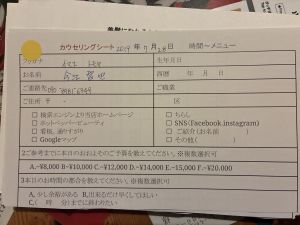 カウセリングシート 2019年 7月28日 時間〜メニュー
フリガナ
生年月日
お名前
西暦 年 月 日
ご連絡先
ご職業
ご住所 〒 -
区
□ 検索エンジンより当店ホームページ
□ ちらし
□ ホットペッパービューティ
□ SNS(Facebook.instagram)
□ 看板、通りすがり
□ ご紹介(お名前 )
□ Googleマップ
□ その他( )
2ご参考までに本日のおおよそのご予算を教えてください。※複数選択可
A.~¥8,000 B~¥10,000 C.~¥12,000 D.~¥14,000 E.~15,000 F.~¥20.000
3本日のお時間の都合を教えてください。※複数選択可
A, 少し余裕がある B,出来るだけ早くしてほしい
C,( 時 分)までに終わりたい